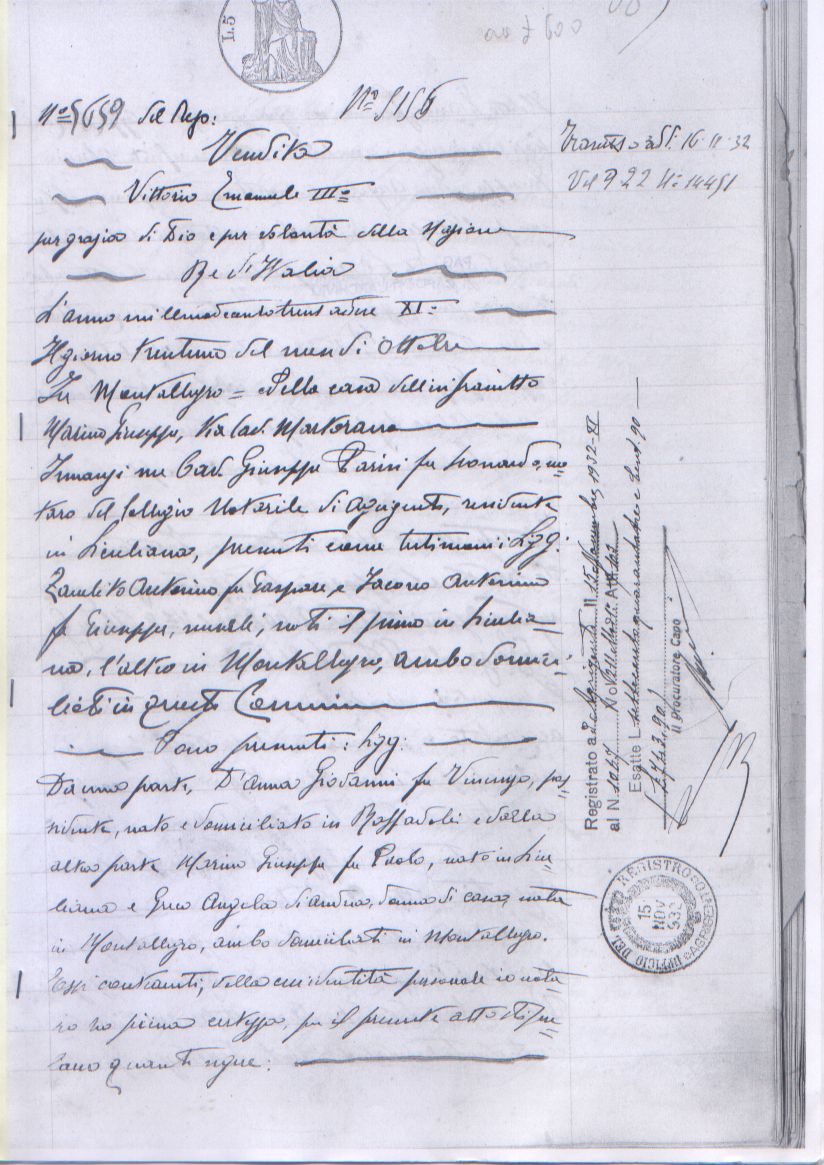 L.5
N° 5659 del Rep: N° 5156
Vendita
Vittorio Emanuele III°
per grazia di Dio e per volontà della Nazione
Re d'Italia
L'anno millenovecentotrentadue XI°
Il giorno trentuno del mese di Ottobre
In Montallegro = Nella casa dell'infrascritto
Marino Giuseppe, Via Cad. Martorana
Innanzi me Cav. Giuseppe Parisi fu Leonardo, no=
taro del Collegio Notarile di Agrigento, residente
in Siculiana, presenti come testimonii i Sigg:
Zambito Antonino fu Gaspare e Iacono Antonino
fu Giuseppe, nati il primo in Siculia=
na, l'altro in Montallegro, ambo domici=
liati in questo Comune
Sono presenti: Sigg:
Da una parte, D'Anna Giovanni fu Vincenzo, pos=
sidente, nato e domiciliato in Raffadali e dalla
altra parte Marino Giuseppe fu Paolo, nato in Sicu=
liana e Greco Angela di Andrea, donna di casa, nata
in Montallegro, ambo domiciliati in Montallegro.
Essi contraenti, della cui identità personale io nota=
ro ho piena certezza, per il presente atto stipu=
lano quanto segue:
16 11 32
Vol 922 N° 14451
Registrato a Agrigento li 15 Novembre 1932-XI
al N. 1064
Esatte L. settecentoquarantatre e cent. 90
(L 743,90)
Il Procuratore Capo
UFFICIO DEL REGISTRO
15 NOV 932